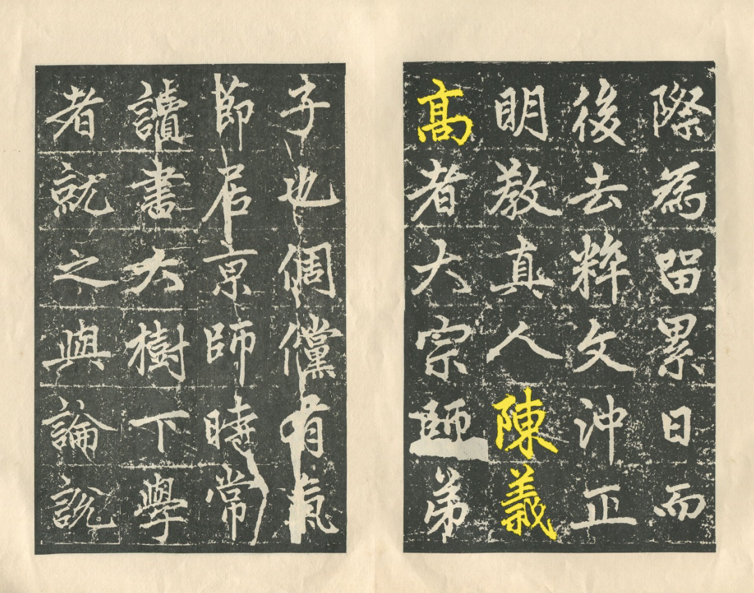 際為留累日而
後去粹文沖正
明教真人陳義
髙者大宗師弟
子也倜儻有氣
節居京師時常
讀書大樹下學
者就之與論說